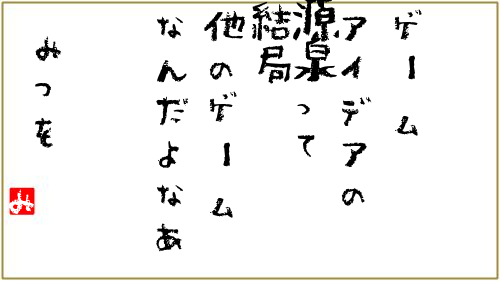 ゲーム
アイデアの
源泉って
結局
他のゲーム
なんだよなあ
みつを
み